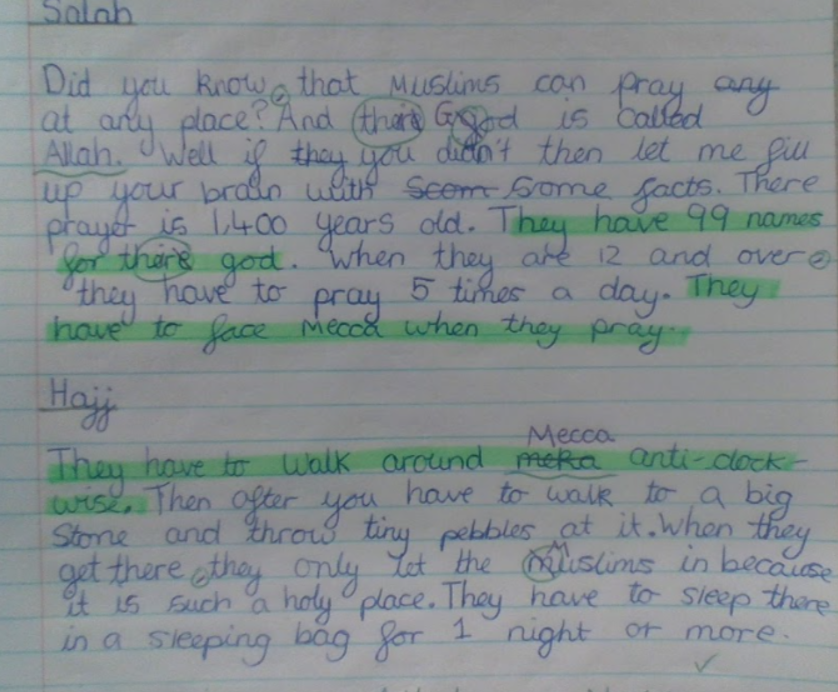 Salah
Did you know, that Muslims can pray any
at any place? And there God is called
Allah. Well if they you didn't then let me fill
up your brain with Scom some facts. There
prayer is 1,400 years old. They have 99 names
for there god. When they are 12 and over,
they have to pray 5 times a day. They
have to face Mecca when they pray.
Hajj
Mecca
They have to walk around meka anti-clock-
wise. Then after you have to walk to a big
stone and throw tiny pebbles at it. When they
get there, they only let the Muslims in because
it is such a holy place. They have to sleep there
in a sleeping bag for 1 night or more.